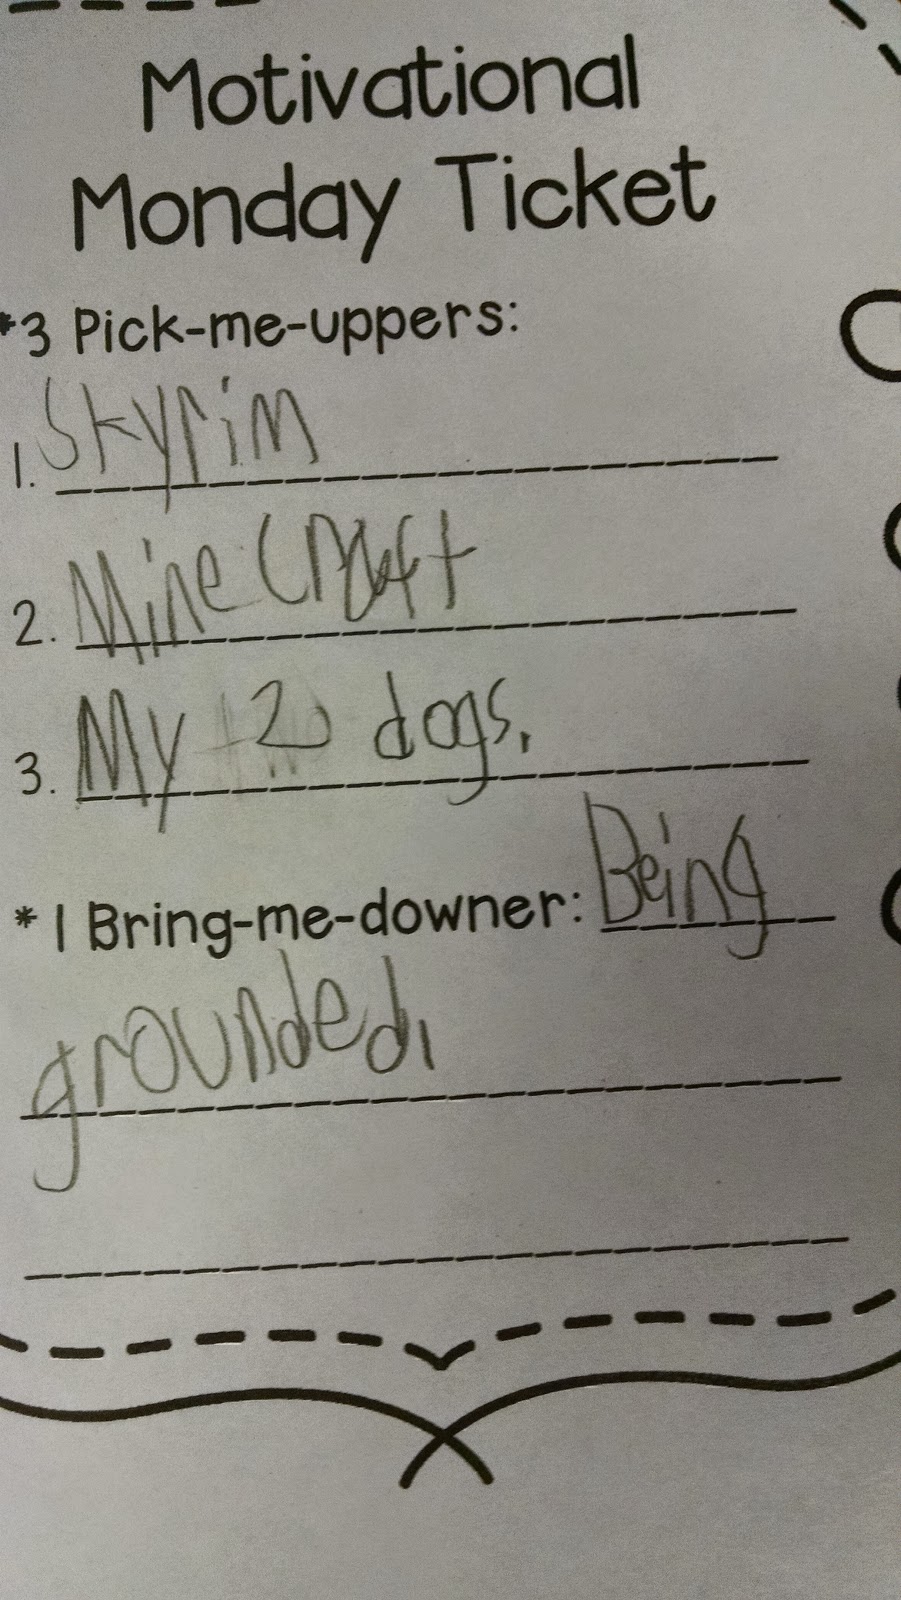 Motivational
Monday Ticket
*3 Pick-me-uppers:
1. Skyrim
2. Minecraft
3. My 2 dogs.
*1 Bring-me-downer: Being
grounded.